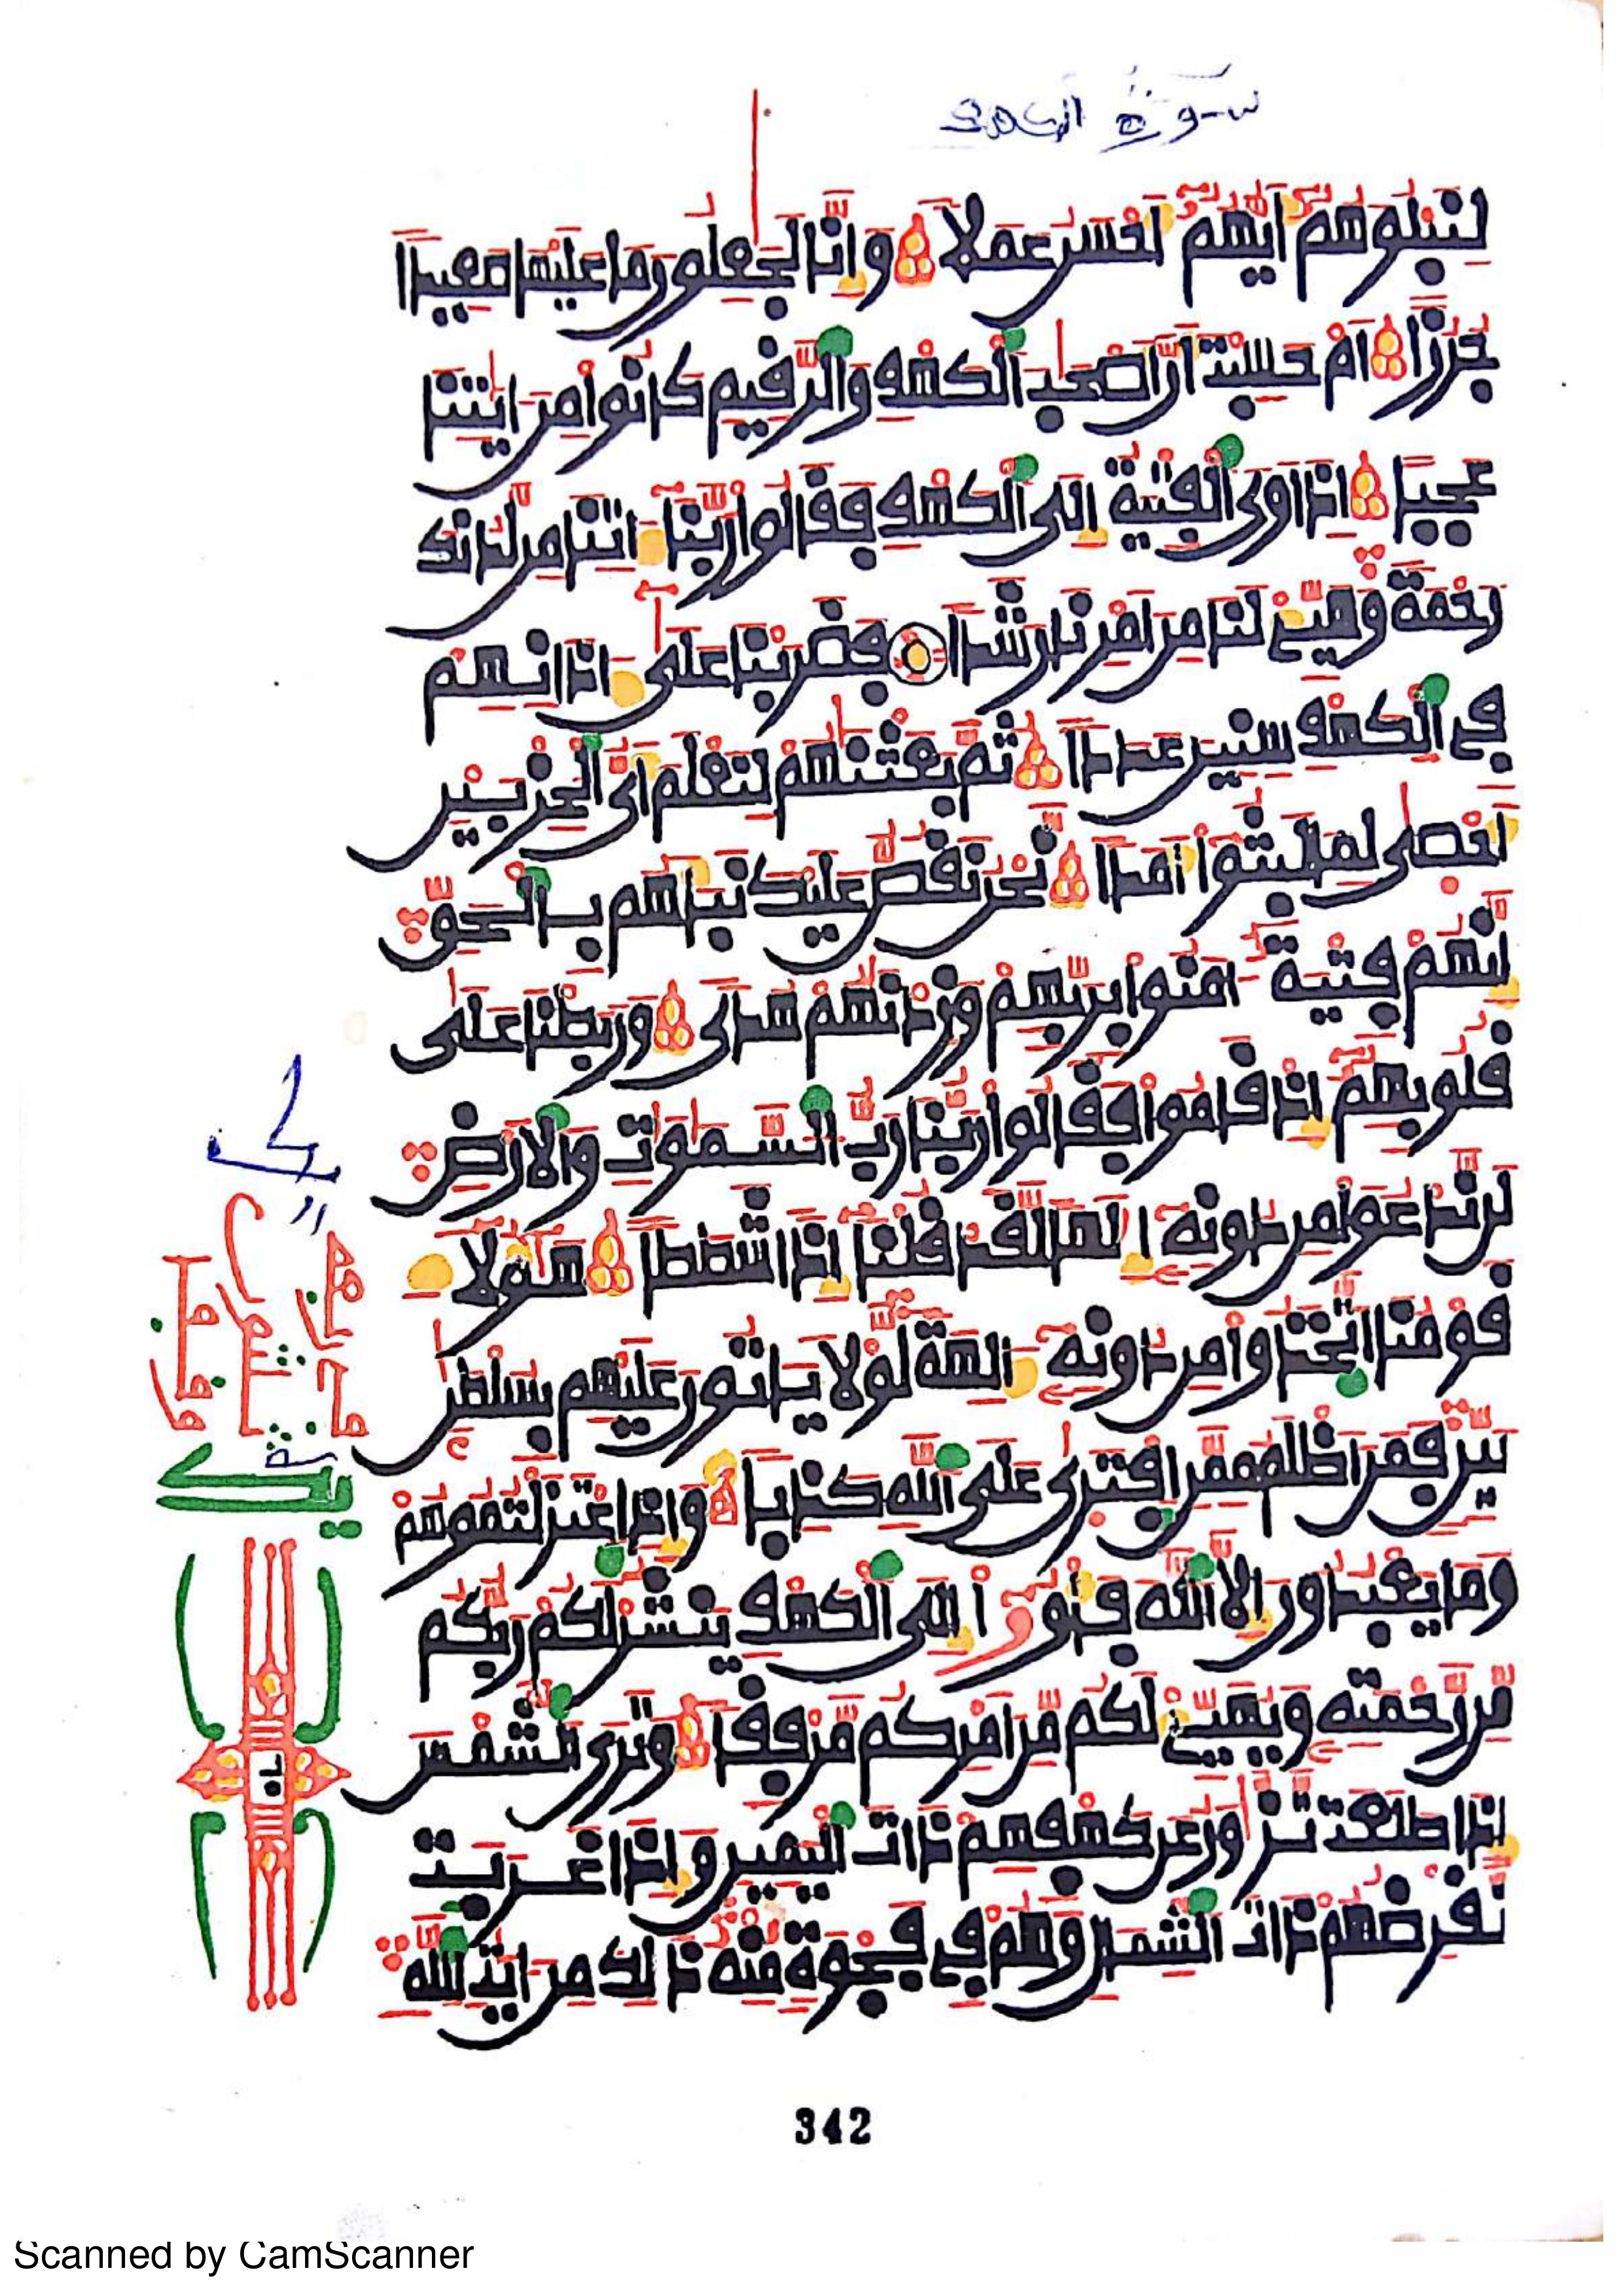 سورة الكهف
لنبلوهم أيهم أحسن عملا وإنا لجعلون ما عليها صعيدا
جرزا أم حسبت أن أصحب الكهف والرقيم كانوا من ايتنا
عجبا إذ اوى الفتية إلى الكهف فقالوا ربنا اتنا من لدنك
رحمة وهيئ لنا من امرنا رشدا فضربنا على اذانهم
في الكهف سنين عددا ثم بعثنهم لنعلم أي الحزبين
أحصى لما لبثوا أمدا نحن نقص عليك نبأهم بالحق
إنهم فتية امنوا بربهم وزدنهم هدى وربطنا على
قلوبهم إذ قاموا فقالوا ربنا رب السموت والارض
لن ندعوا من دونه إلها لقد قلنا إذا شططا هؤلا
قومنا اتخذوا من دونه الهة لولا ياتون عليهم بسلطن
بين فمن اظلم ممن افترى على الله كذبا وإذ اعتزلتموهم
وما يعبدون إلا الله فأوا إلى الكهف ينشر لكم ربكم
من رحمته ويهيئ لكم من امركم مرفقا وترى الشمس
إذا طلعت تزور عن كهفهم ذات اليمين وإذا غربت
تقرضهم ذات الشمال وهم في فجوة منه ذلك من ايت الله
342
Scanned by CamScanner